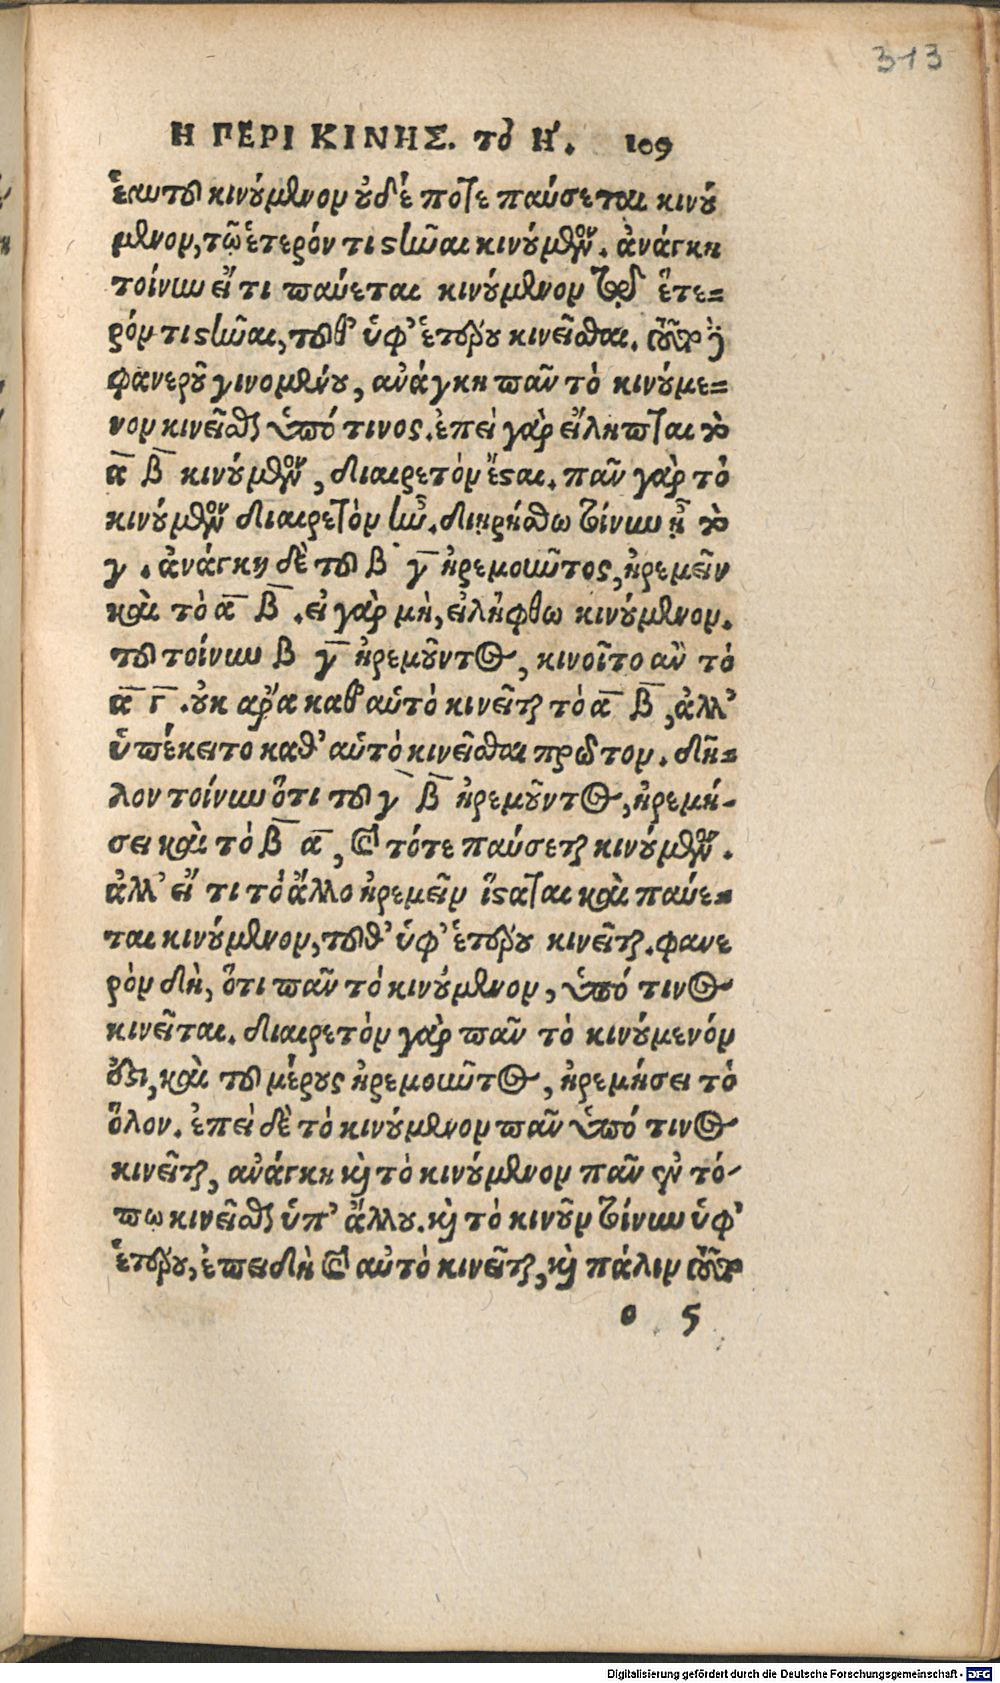 313
Η ΠΕΡΙ ΚΙΝΗΣ. τὸ Η΄. 109
ἑαυτοῦ κινούμενον οὐδέ ποτε παύσεται κινού
μενον, τῷ ἕτερόν τι στῆναι κινούμενον. ἀνάγκη
τοίνυν εἴ τι παύεται κινούμενον τῷ ἕτε=
ρόν τι στῆναι, τοῦθ' ὑφ' ἑτέρου κινεῖσθαι. τούτου δὲ
φανεροῦ γινομένου, ἀνάγκη πᾶν τὸ κινούμε=
νον κινεῖσθαι ὑπό τινος. ἐπεὶ γὰρ εἴληπται τὸ
α β κινούμενον, διαιρετὸν ἔσται. πᾶν γὰρ τὸ
κινούμενον διαιρετὸν ἦν. διῃρήσθω τοίνυν ᾗ τὸ
γ. ἀνάγκη δὲ τοῦ β γ ἠρεμοῦντος, ἠρεμεῖν
καὶ τὸ α β. εἰ γὰρ μὴ, εἰλήφθω κινούμενον.
τοῦ τοίνυν β γ ἠρεμοῦντος, κινοῖτο ἂν τὸ
α γ. οὐκ ἄρα καθ' αὑτὸ κινεῖται τὸ α β, ἀλλ'
ὑπέκειτο καθ' αὑτὸ κινεῖσθαι πρῶτον. δῆ=
λον τοίνυν ὅτι τοῦ γ β ἠρεμοῦντος, ἠρεμή-
σει καὶ τὸ β α, καὶ τότε παύσεται κινούμενον.
ἀλλ' εἴ τι τὸ ἄλλο ἠρεμεῖν ἵσταται καὶ παύε=
ται κινούμενον, τοῦθ' ὑφ' ἑτέρου κινεῖται. φανε
ρὸν δὴ, ὅτι πᾶν τὸ κινούμενον, ὑπό τινος
κινεῖται. διαιρετὸν γὰρ πᾶν τὸ κινούμενόν
ὅστι, καὶ τοῦ μέρους ἠρεμοῦντος, ἠρεμήσει τὸ
ὅλον. ἐπεὶ δὲ τὸ κινούμενον πᾶν ὑπό τινος
κινεῖται, ἀνάγκη καὶ τὸ κινούμενον πᾶν ἐν τό-
πῳ κινεῖσθαι ὑπ' ἄλλου. καὶ τὸ κινοῦν τοίνυν ὑφ'
ἑτέρου, ἐπειδὴ καὶ αὐτὸ κινεῖται, καὶ πάλιν τοῦτο
ο 5
Digitalisierung gefördert durch die Deutsche Forschungsgemeinschaft - DFG